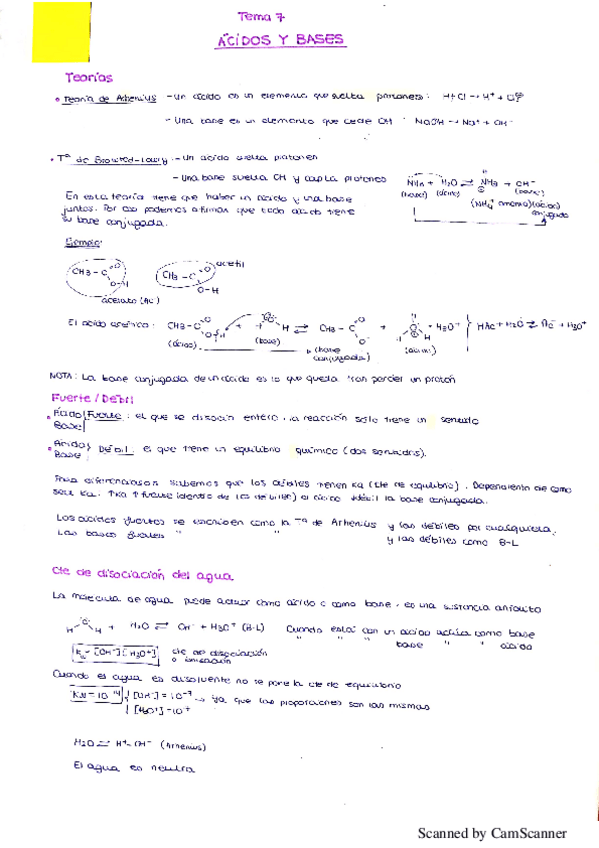 Tema 7
ÁCIDOS Y BASES
Teorías
• Teoría de Arhenius - Un ácido es un elemento que suelta protones: HCl → H⁺ + Cl⁻
- Una base es un elemento que cede OH⁻ NaOH → Na⁺ + OH⁻
• Tª de Brosted-Lowry - Un ácido suelta protones
- Una base suelta OH y capta protones
NH₃ + H₂O ⇌ NH₄ + OH⁻
(base) (ácido) (NH₄⁺ amonio)(ácido) (base)
conjugado
En esta teoría tiene que haber un ácido y una base
juntos. Por eso podemos afirmar que todo ácido tiene
su base conjugada.
Ejemplo:
CH₃-C O O-H CH₃-C O O-H acetil
acetato (Ac)
El ácido acético: CH₃-C O O-H + H ⇌ CH₃-C O O⁻ + H₃O⁺ } HAc + H₂O ⇌ Ac⁻ + H₃O⁺
(ácido) (base) (base conjugada) (ácido)
NOTA: La base conjugada de un ácido es lo que queda tras perder un protón
Fuerte / Débil
• Ácido Base} Fuerte: el que se disocia entero, la reacción solo tiene un sentido
• Ácido Base} Débil: el que tiene un equilibrio químico (dos sentidos).
Para diferenciarlos sabemos que los ácidos tienen Ka (cte de equilibrio). Dependiendo de como
sea Ka. ↑Ka ↑fuerte (dentro de los débiles) el ácido débil la base conjugada.
Los ácidos fuertes se escriben como la Tª de Arhenius y los débiles por cualquiera.
Las bases fuertes " " y las débiles como B-L
Cte de disociación del agua
La molécula de agua puede actuar como ácido o como base, es una sustancia anfolito
H O H + H₂O ⇌ OH⁻ + H₃O⁺ (B-L) Cuando está con un ácido actúa como base
" " " base " " ácido
Kw = [OH⁻][H₃O⁺] cte de disociación
o ionización
Cuando el agua es disolvente no se pone la cte de equilibrio
KW = 10⁻¹⁴ [OH⁻] = 10⁻⁷ → Ya que las proporciones son las mismas
[H₃O⁺] = 10⁻⁷
H₂O ⇌ H⁺ OH⁻ (Arhenius)
El agua es neutra
Scanned by CamScanner